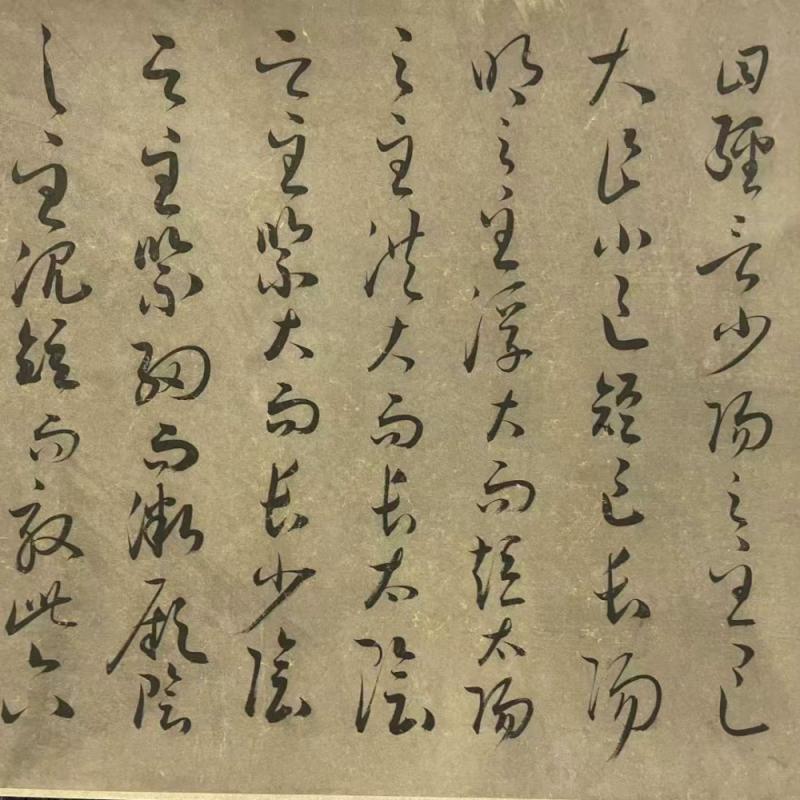 曰經言少陽之至乍
大乍小乍短乍長陽
明之至浮大而短太陽
之至洪大而長太陰
之至緊大而長少陰
之至緊細而微厥陰
之至沉短而敦此六